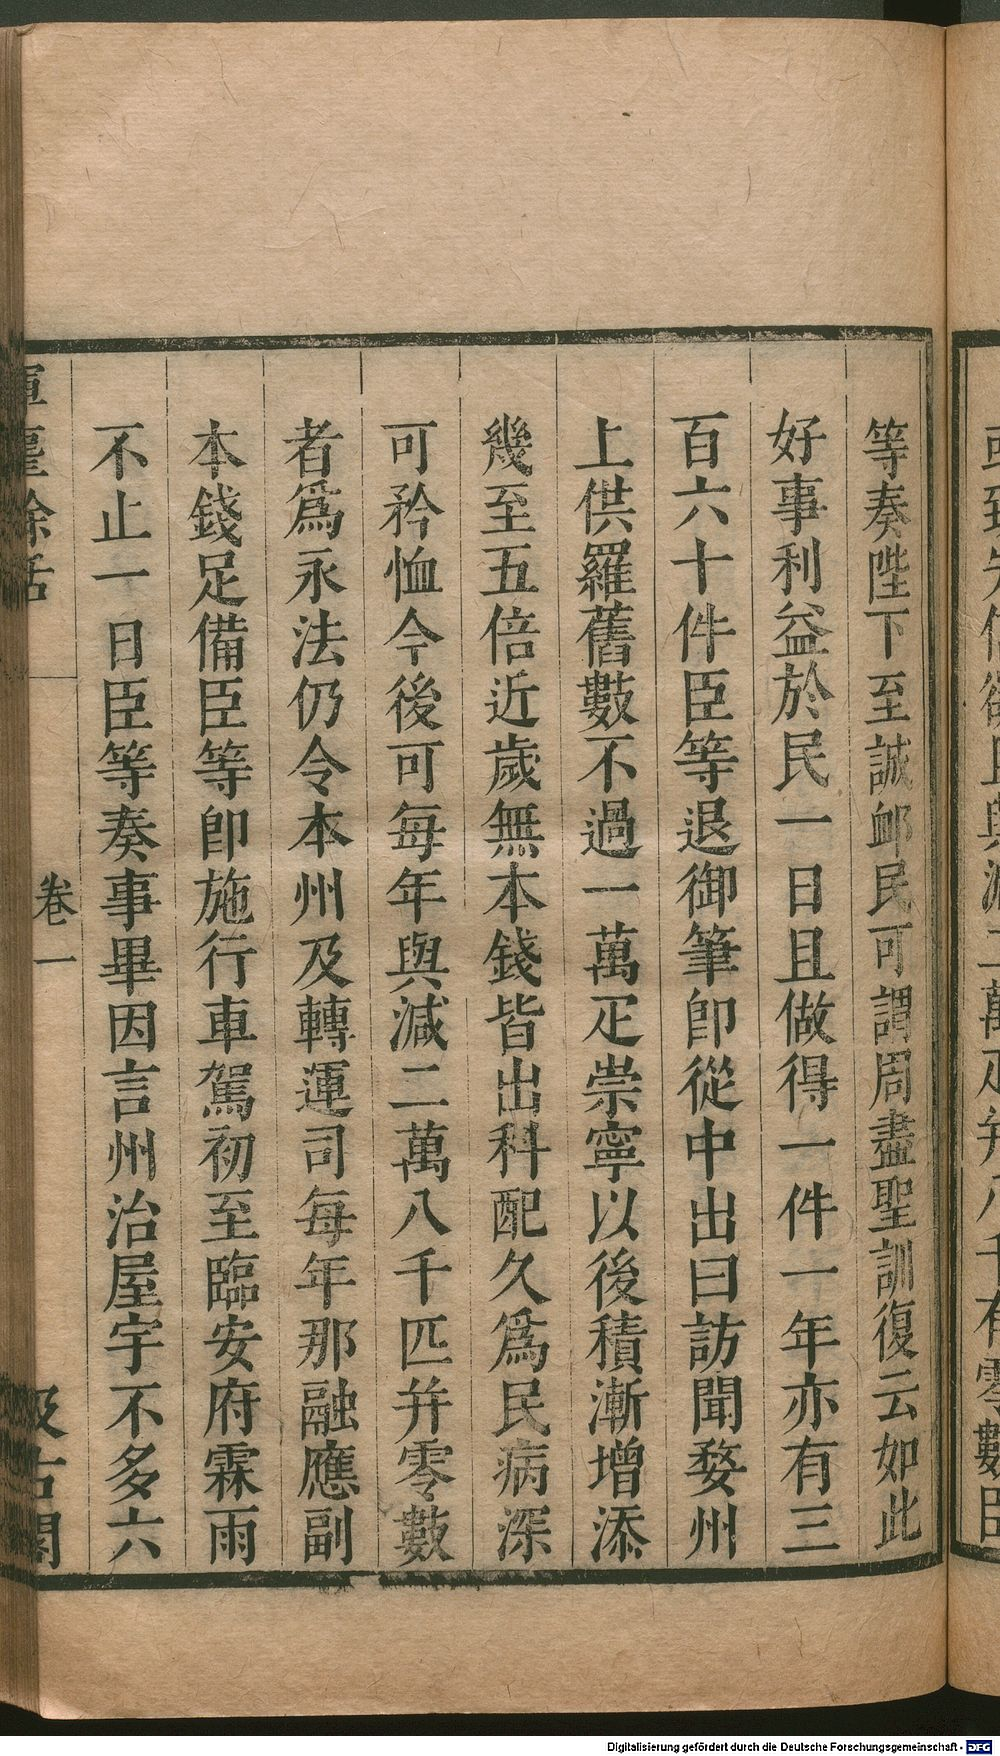 等奏陛下至誠卹民可謂周盡聖訓復云如此
好事利益於民一日且做得一件一年亦有三
百六十件臣等退御筆卽從中出曰訪聞婺州
上供羅舊數不過一萬疋崇寧以後積漸增添
幾至五倍近歲無本錢皆出科配久爲民病深
可矜恤今後可每年與減二萬八千匹并零數
者爲永法仍令本州及轉運司每年那融應副
本錢足備臣等卽施行車駕初至臨安府霖雨
不止一日臣等奏事畢因言州治屋宇不多六
卷一
汲古閣
Digitalisierung gefördert durch die Deutsche Forschungsgemeinschaft - DFG